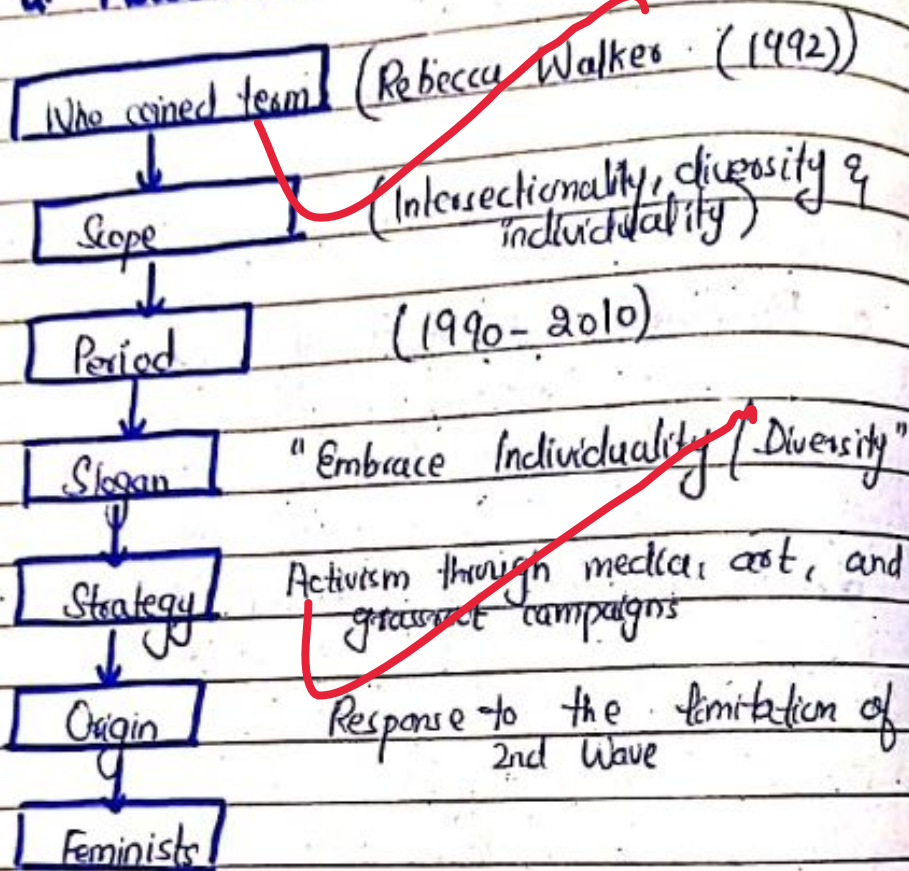 Who coined term (Rebecca Walker (1992))
Scope (Intersectionality, diversity &
individuality)
Period (1990-2010)
Slogan "Embrace Individuality / Diversity"
Strategy Activism through media, art, and
grassroot campaigns
Origin Response to the limitation of
2nd Wave
Feminists